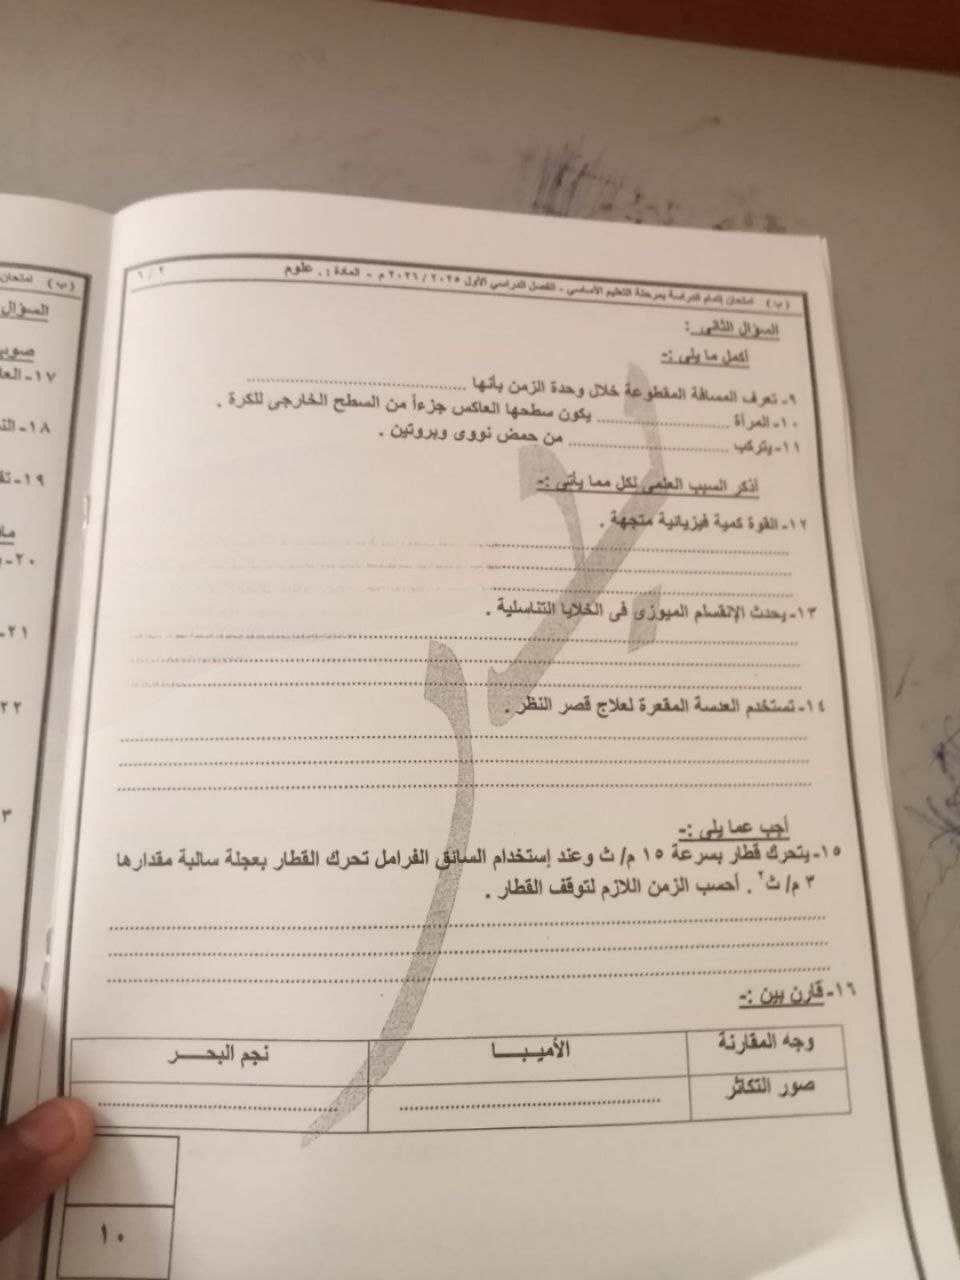 ٢ / ٦
(ب) امتحان إتمام الدراسة بمرحلة التعليم الأساسي - الفصل الدراسي الأول ٢٠٢٥ / ٢٠٢٦ م - المادة : علوم
السؤال الثانى :
أكمل ما يلى :-
٩- تعرف المسافة المقطوعة خلال وحدة الزمن بأنها ..............................
١٠- المرأة .................... يكون سطحها العاكس جزءاً من السطح الخارجى للكرة .
١١- يتركب .................... من حمض نووى وبروتين .
أذكر السبب العلمى لكل مما يأتى :-
١٢- القوة كمية فيزيائية متجهة .
١٣- يحدث الإنقسام الميوزى فى الخلايا التناسلية .
١٤- تستخدم العدسة المقعرة لعلاج قصر النظر .
أجب عما يلى :-
١٥- يتحرك قطار بسرعة ١٥ م/ ث وعند إستخدام السائق الفرامل تحرك القطار بعجلة سالبة مقدارها
٣ م/ ث٢ . أحسب الزمن اللازم لتوقف القطار .
١٦- قارن بين :-
وجه المقارنة الأميبـــا نجم البحــر
صور التكاثر .................... ....................
١٠
بدر
(ب) امتحان
السؤال
صوب
١٧- العا
١٨- الن
١٩- تق
٢٠-
٢١-
٢٢
٣